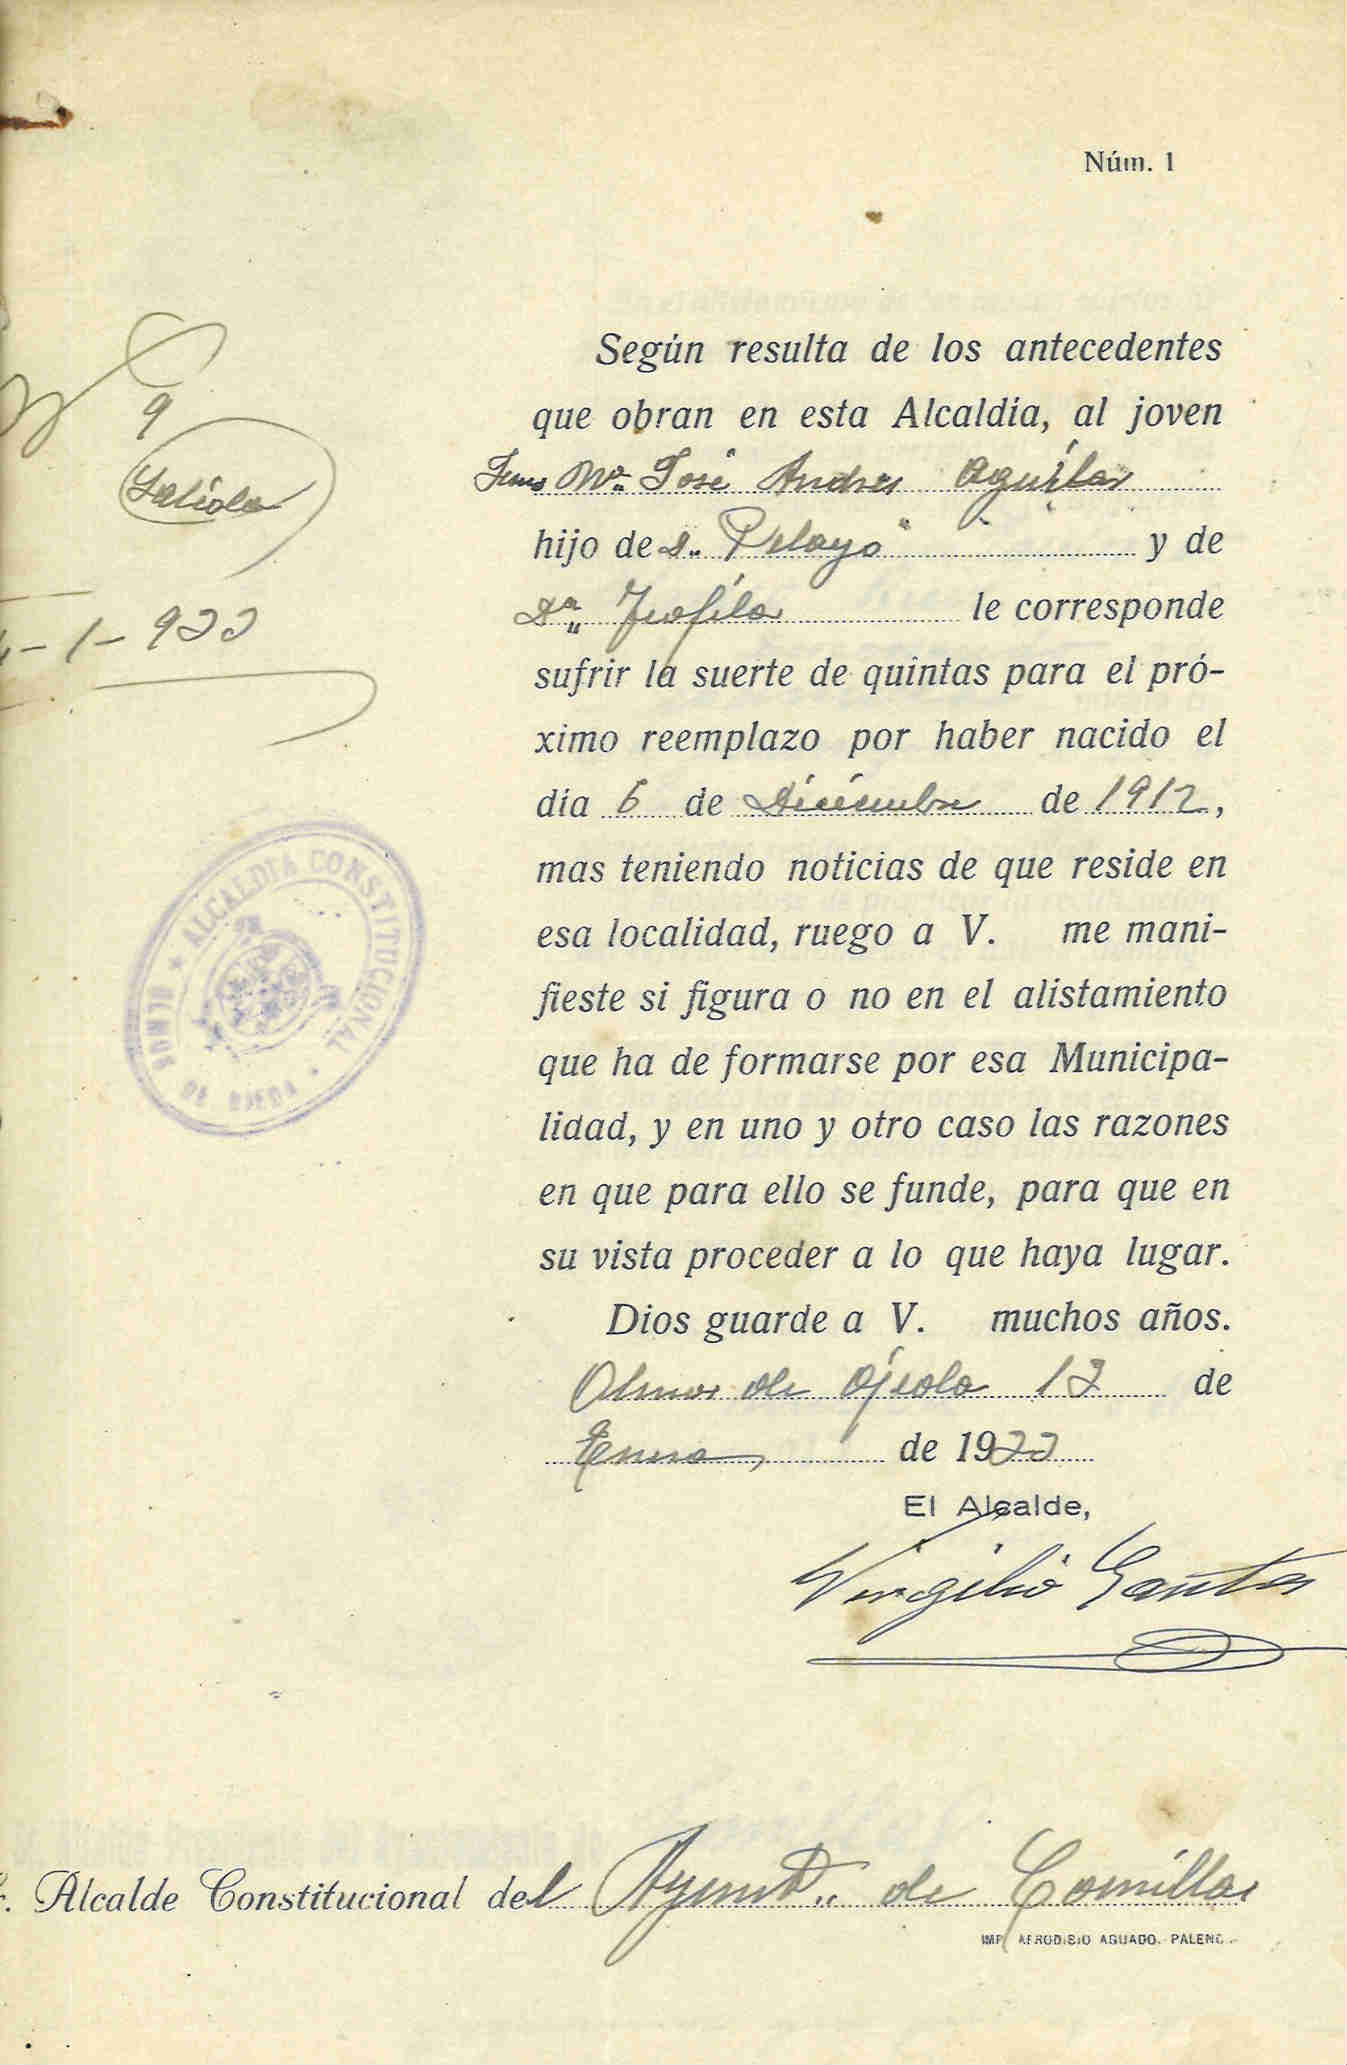 Núm. 1
Según resulta de los antecedentes
que obran en esta Alcaldía, al joven
Mª José Andres Aguilar
hijo de D. Pelayo y de
Dª Teofila le corresponde
sufrir la suerte de quintas para el pró-
ximo reemplazo por haber nacido el
día 6 de Diciembre de 1912,
mas teniendo noticias de que reside en
esa localidad, ruego a V. me mani-
fieste si figura o no en el alistamiento
que ha de formarse por esa Municipa-
lidad, y en uno y otro caso las razones
en que para ello se funde, para que en
su vista proceder a lo que haya lugar.
Dios guarde a V. muchos años.
Olmos de Ojeda 12 de
Enero de 1933
El Alcalde,
Virgilio Santos
Alcalde Constitucional del Ayunto. de Comillas
IMP. AFRODISIO AGUADO.-PALENC
9
Salida
-1-933
ALCALDIA CONSTITUCIONAL
OLMOS DE OJEDA